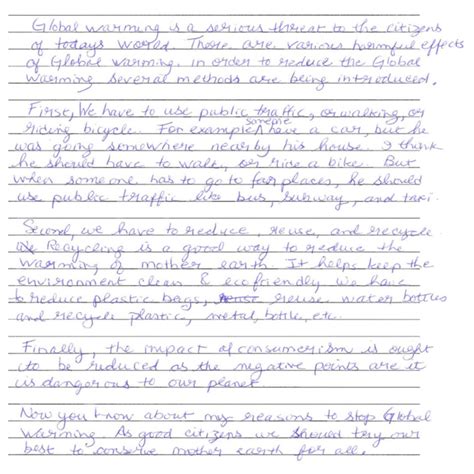 Global warming is a serious threat to the citizens
of todays world. There are various harmful effects
of Global warming. in order to reduce the Global
Warming several methods are being introduced.
First, We have to use public traffic, or walking, or
riding bicycle. For example, someone have a car, but he
was going somewhere nearby his house. I think
he should have to walk, or rise a bike. But
when someone has to go to far places, he should
use public traffic like bus, subway, and taxi.
Second, we have to reduce, reuse, and recycle
Recycling is a good way to reduce the
warming of mother earth. It helps keep the
environment clean & ecofriendly we have
to reduce plastic bags, reuse water bottles
and recycle plastic, metal, bottle, etc.
Finally, the impact of consumerism is ought
to be reduced as the negative points are it
is dangerous to our planet
Now you know about my reasons to stop Global
Warming. As good citizens we should try our
best to conserve mother earth for all.